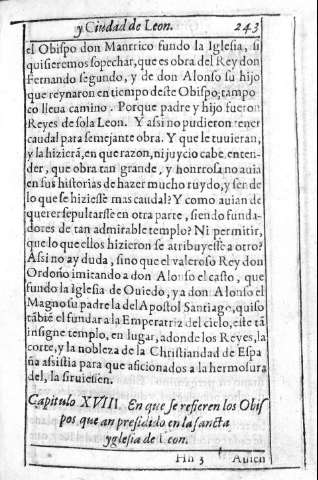 y Ciudad de Leon. 243
el Obispo don Manrrico fundo la Iglesia, si
quisieremos sopechar, que es obra del Rey don
Fernando segundo, y de don Alonso su hijo
que reynaron en tiempo deste Obispo, tampo
co lleua camino. Porque padre y hijo fueron
Reyes de sola Leon. Y assi no pudieron tener
caudal para semejante obra. Y que le tuuieran,
y la hizierã, en que razon, ni juycio cabe enten-
der, que obra tan grande, y honrrosa no auia
en sus historias de hazer mucho ruydo, y ser de
lo que se hiziesse mas caudal? Y como auian de
querer sepultarse en otra parte, siendo funda-
dores de tan admirable templo? Ni permitir,
que lo que ellos hizieron se atribuyesse a otro?
Assi no ay duda, sino que el valeroso Rey don
Ordoño imitando a don Alonso el casto, que
fundo la Iglesia de Ouiedo, ya don Alonso el
Magno su padre la del Apostol Santiago, quiso
tãbiẽ el fundar a la Emperatriz del cielo, este tã
insigne templo, en lugar, adonde los Reyes, la
corte, y la nobleza de la Christiandad de Espa
ña assistia para que aficionados a la hermosura
del, la siruiessen.
Capitulo XVIII. En que se refieren los Obis
pos que an presidido en la sancta
yglesia de Leon.
Hh 3 Auien